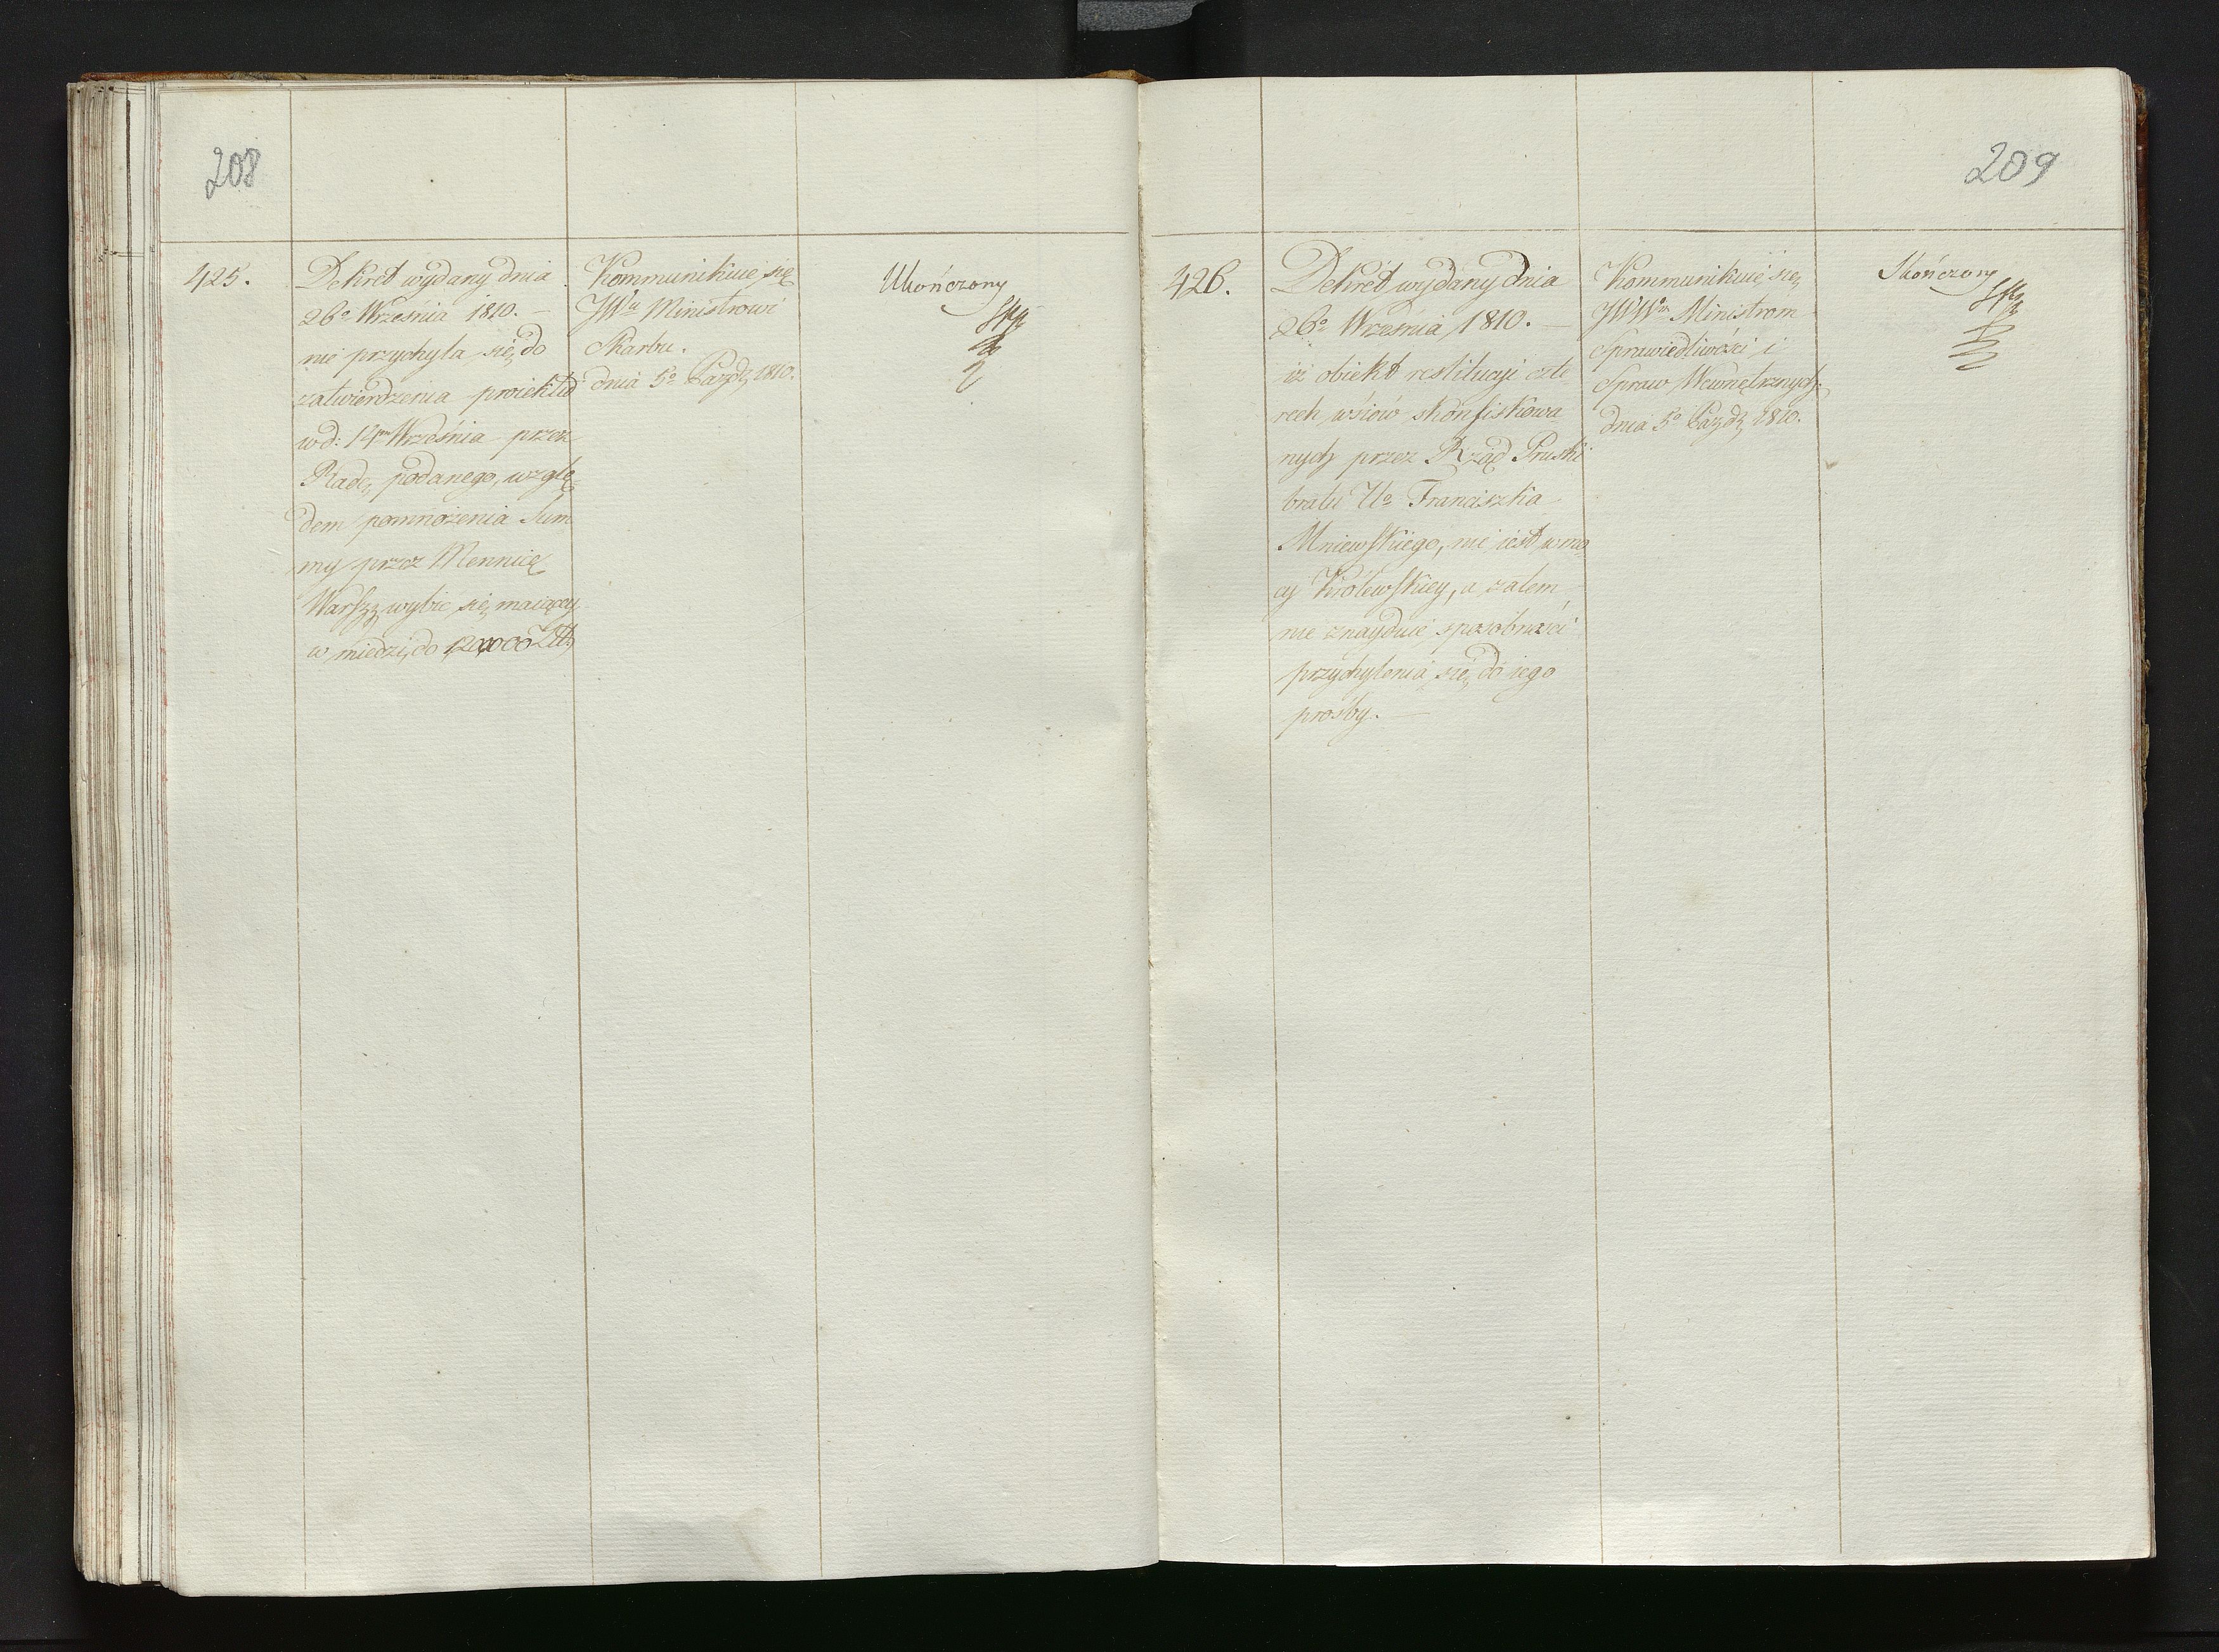 208
425.
Dekret wydany dnia
26º Września 1810. –
nie przychyla się do
zatwierdzenia proiektu
w d: 14 Września przez
Radę podanego, wzglę-
dem pomnożenia Sum
my przez Mennicę
Warsz: wybić się maiącey
w miedzi, do 120,000 Złł
Kommunikuie się
JWu Ministrowi
Skarbu.
dnia 5º Paźdz 1810.
Ukończony
209
426.
Dekret wydany dnia
26º Września 1810. –
iż obiekt restitucyi czte
rech wsiów skonfiskowa
nych przez Rząd Pruski
bratu Uº Franciszka
Mniewskiego, nie iest w mo
cy Królewskiey, a zatem
nie znayduie sposobności
przychylenia się do iego
prośby. –
Kommunikuie się
JWWm Ministrom
Sprawiedliwości i
Spraw Wewnętrznych
dnia 5º Paźdz 1810.
Skończony